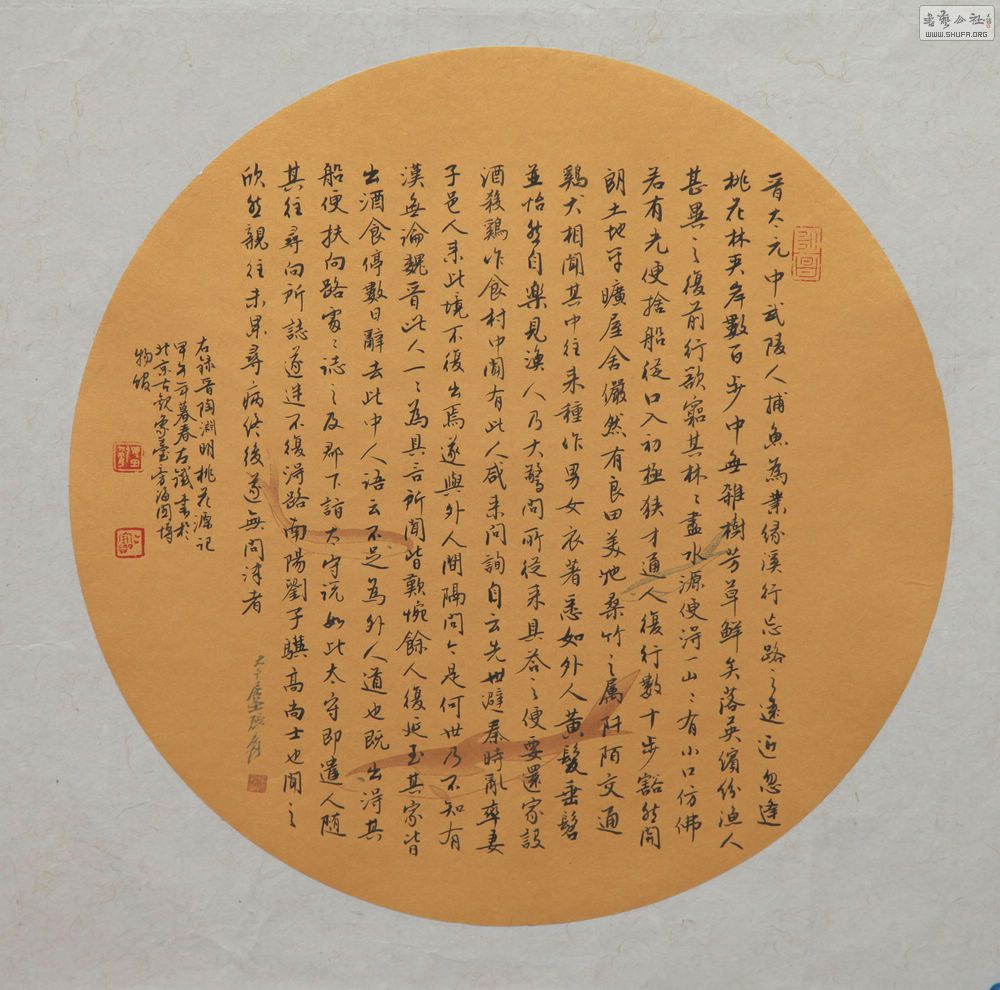 晋太元中武陵人捕魚為業緣溪行忘路之遠近忽逢
桃花林夹岸數百步中無雜樹芳草鮮美落英繽纷渔人
甚異之復前行欲窮其林林盡水源便淂一山山有小口仿佛
若有光便捨船從口入初極狭才通人復行數十步豁然開
朗土地平曠屋舍儼然有良田美池桑竹之属阡陌交通
鷄犬相聞其中往来種作男女衣著悉如外人黄髮垂髫
並怡然自樂見渔人乃大驚问所從来具答之便要還家設
酒殺鷄作食村中聞有此人咸来问詢自云先世避秦時亂率妻
子邑人来此境不復出焉遂與外人間隔问今是何世乃不知有
漢無論魏晋此人一一為具言所聞皆歎惋餘人復延至其家皆
出酒食停數日辭去此中人語云不足為外人道也既出淂其
船便扶向路處處誌之及郡下詣太守说如此太守即遣人随
其往尋向所誌遂迷不復淂路南陽劉子驥高尚士也聞之
欣然親往未果尋病终後遂無问津者
右錄晋陶淵明桃花源记
甲午年暮春石識書於
北京古觀象臺方海图博
物馆
書藝公社
WWW.SHUFA.ORG